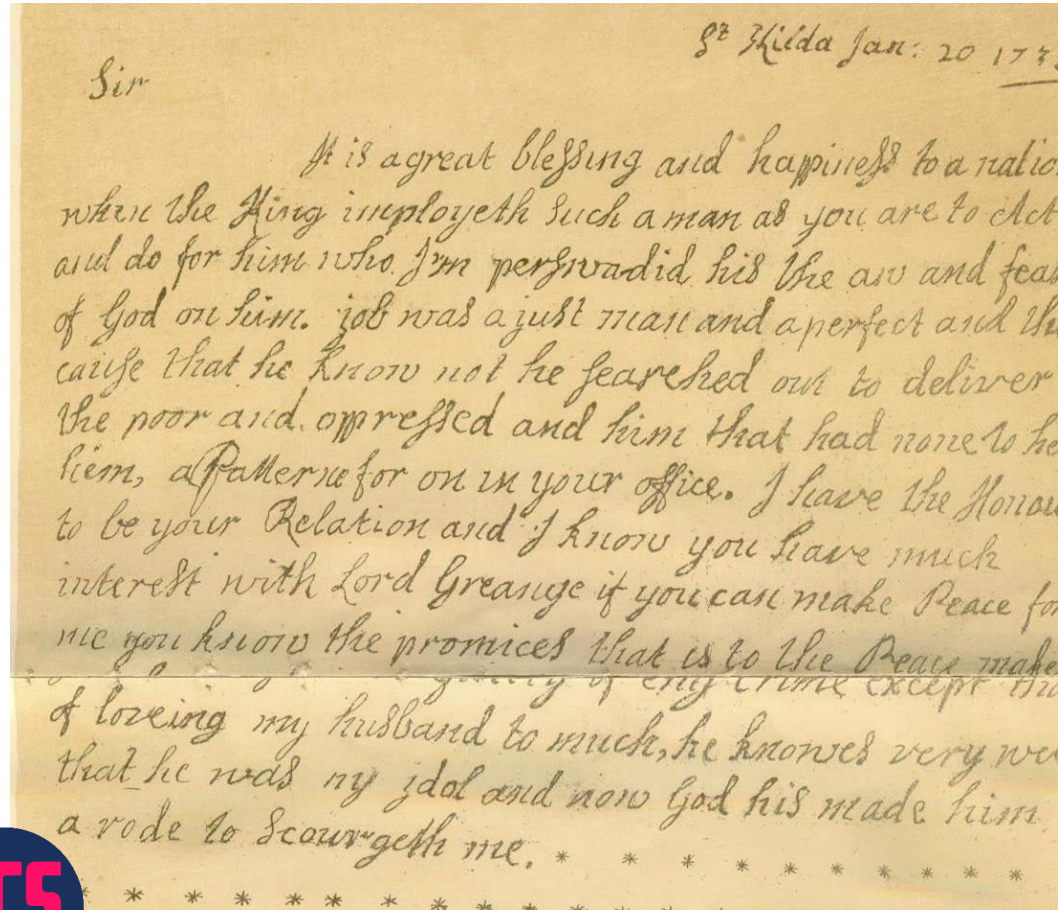 St Kilda Jan: 20 173
Sir
It is a great blessing and happiness to a natio
when the King imployeth such a man as you are to Act
and do for him who I'm perswadid his the aw and fear
of God on him. job was a just man and a perfect and the
cause that he know not he searched out to deliver
the poor and oppressed and him that had none to he
him, a Patterne for on in your office. I have the Honou
to be your Relation and I know you have much
interest with Lord Greange if you can make Peace for
me you know the promices that is to the Peace make
of eny Crime except
of loveing my husband to much, he knowes very we
that he was my idol and now God his made him
a rode to Scourgeth me. * * * * * * * * *
* * * * * * * * * * * *
TS